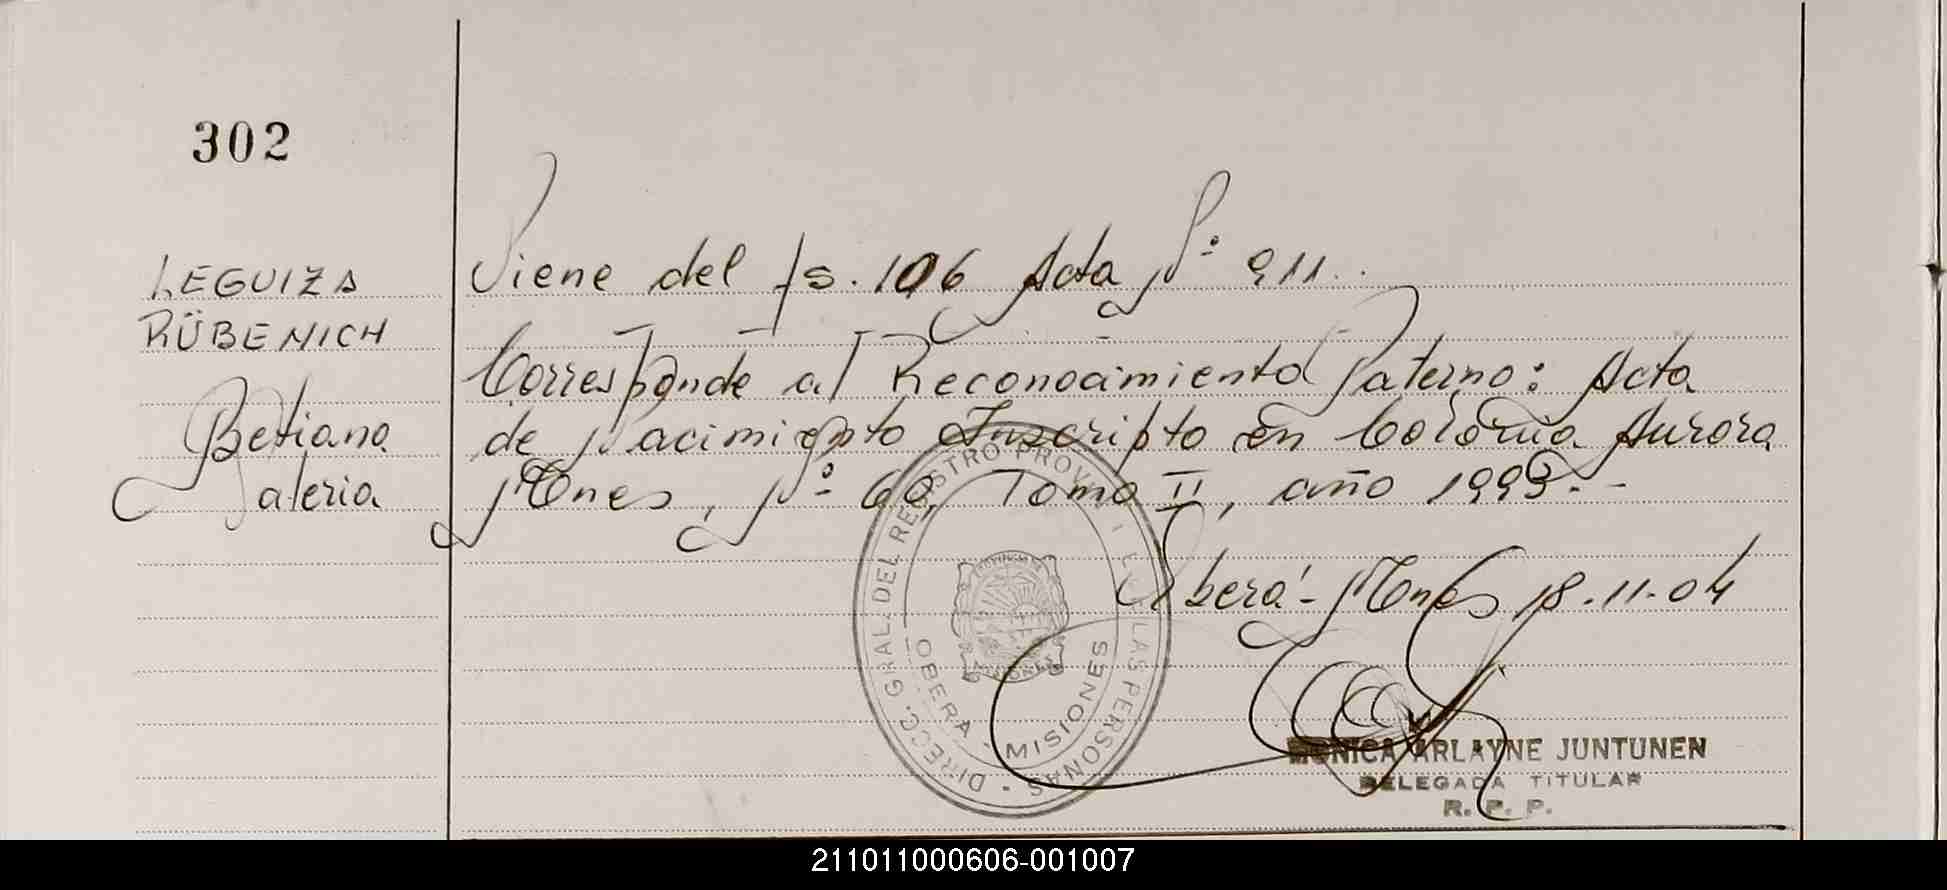 302
LEGUIZA
RÜBENICH
Betiana
Valeria
Viene del fs. 106 Acta Nº 911..
Corresponde al Reconocimiento Paterno: Acta
de Nacimiento Inscripto en Colonia Aurora
Mnes, Nº 60, Tomo II, año 1993.--
Oberá - Mnes 18.11.04
DIRECC. GRAL. DEL REGISTRO PROV. DE LAS PERSONAS
OBERA - MISIONES
MONICA ARLAYNE JUNTUNEN
DELEGADA TITULAR
R. P. P.
211011000606-001007